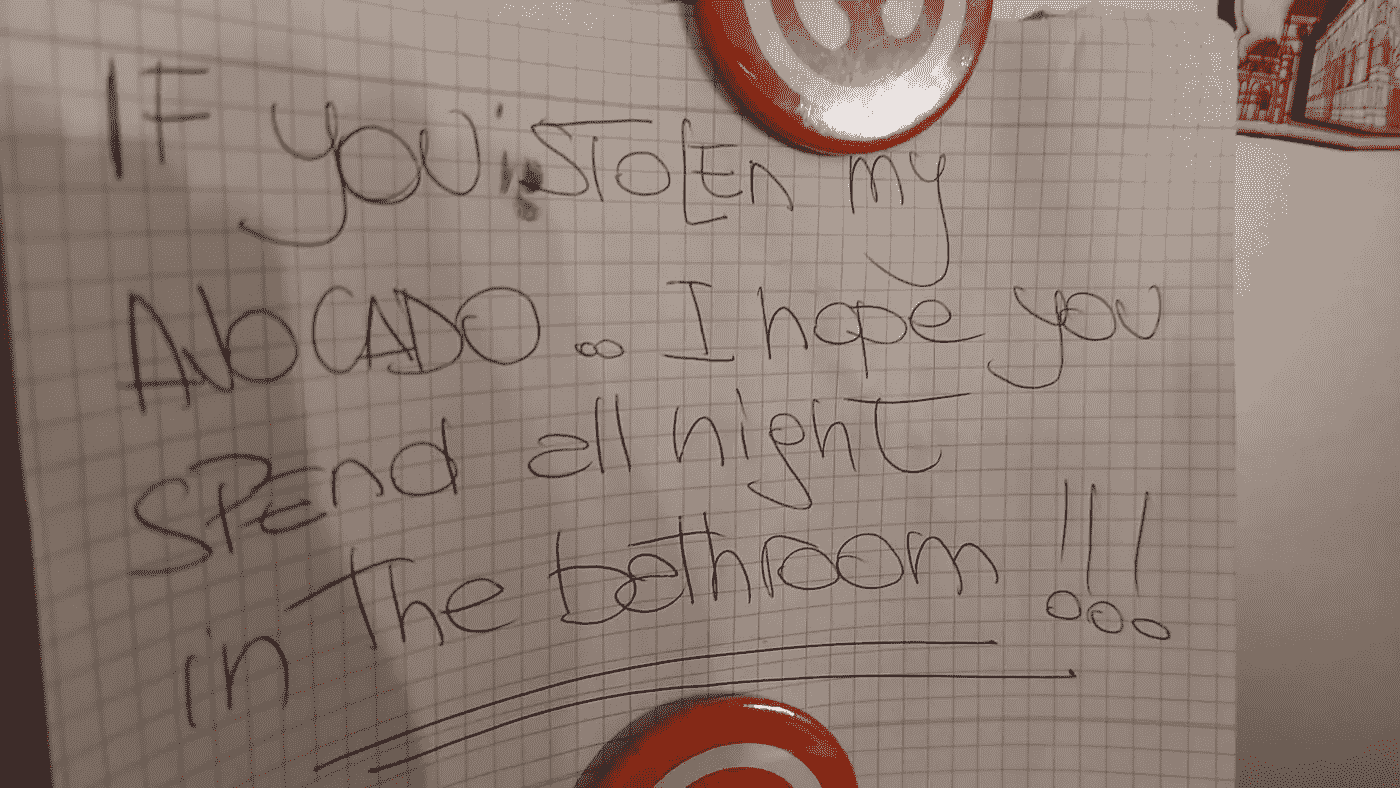 IF you STOLEN my
AVOCADO.. I hope you
SPEnd all night
in The bethroom !!!